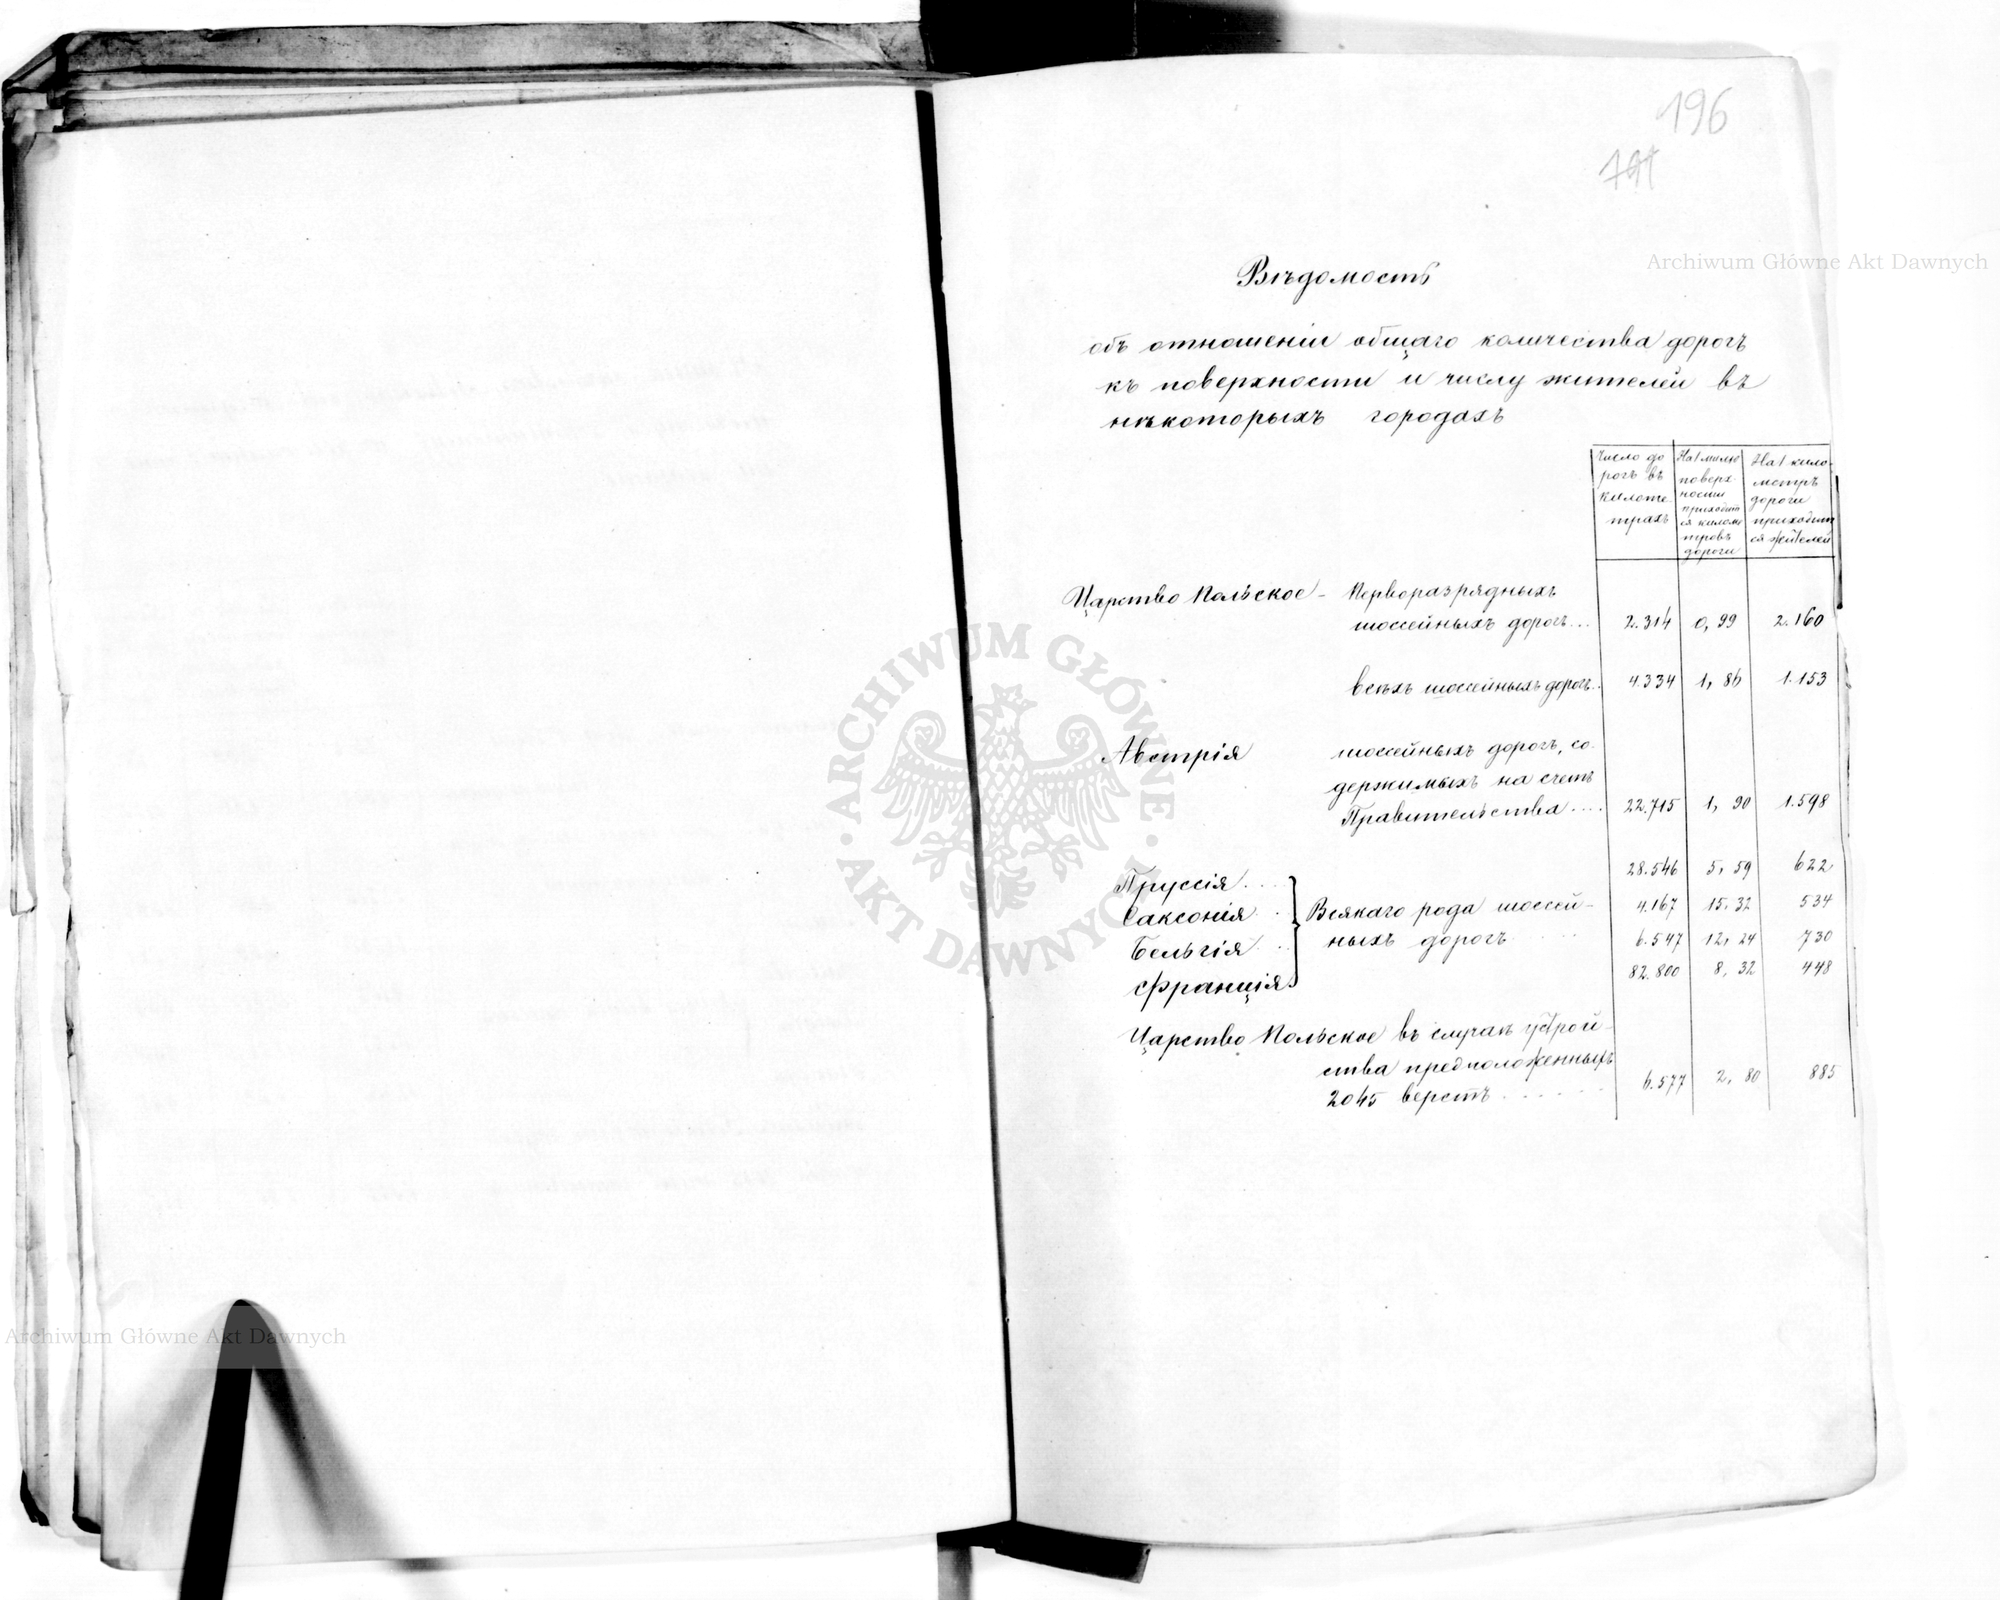 196
Archiwum Główne Akt Dawnych
Вѣдомость
объ отношеніи общаго количества дорогъ
къ поверхности и числу жителей въ
нѣкоторыхъ городахъ
Число до
рогъ въ
километ
трахъ
На 1 милю
поверх-
ности
приходит
ся киломе
тровъ
дороги
На 1 кило-
метръ
дороги
приходит
ся жителей
Царство Польское - Перворазрядныхъ
шоссейныхъ дорогъ... 2.314 0,99 2.160
всѣхъ шоссейныхъ дорогъ.. 4.334 1,86 1.153
Австрія шоссейныхъ дорогъ, со-
держимыхъ на счетъ
Правительства .... 22.715 1,90 1.598
Пруссія .... 28.546 5,59 622
Саксонія .. Всякаго рода шоссей- 4.167 15,32 534
Бельгія ... ныхъ дорогъ 6.547 12,24 730
Франція 82.800 8,32 448
Царство Польское въ случаѣ устрой-
ства предположенныхъ
2045 верстъ ...... 6.577 2,80 885
ARCHIWUM GŁÓWNE · AKT DAWNYCH ·
Archiwum Główne Akt Dawnych